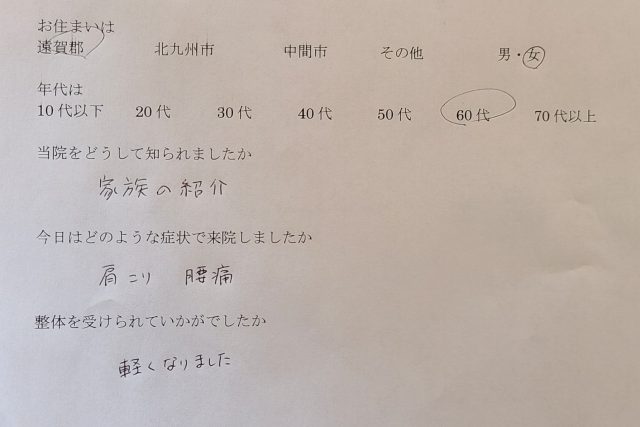 お住まいは
遠賀郡 北九州市 中間市 その他 男・女
年代は
10代以下 20代 30代 40代 50代 60代 70代以上
当院をどうして知られましたか
家族の紹介
今日はどのような症状で来院しましたか
肩こり 腰痛
整体を受けられていかがでしたか
軽くなりました